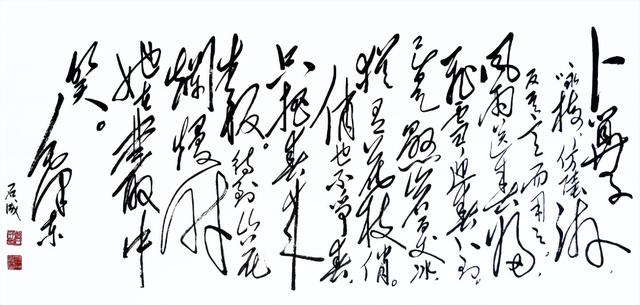 卜算子
咏梅、仿陆游，
反其意而用之，
风雨送春归，
飞雪迎春到，
已是悬岩百丈冰，
犹有花枝俏。
俏也不争春，
只把春来
报。待到山花
烂漫时
她在丛中
笑。
毛泽东